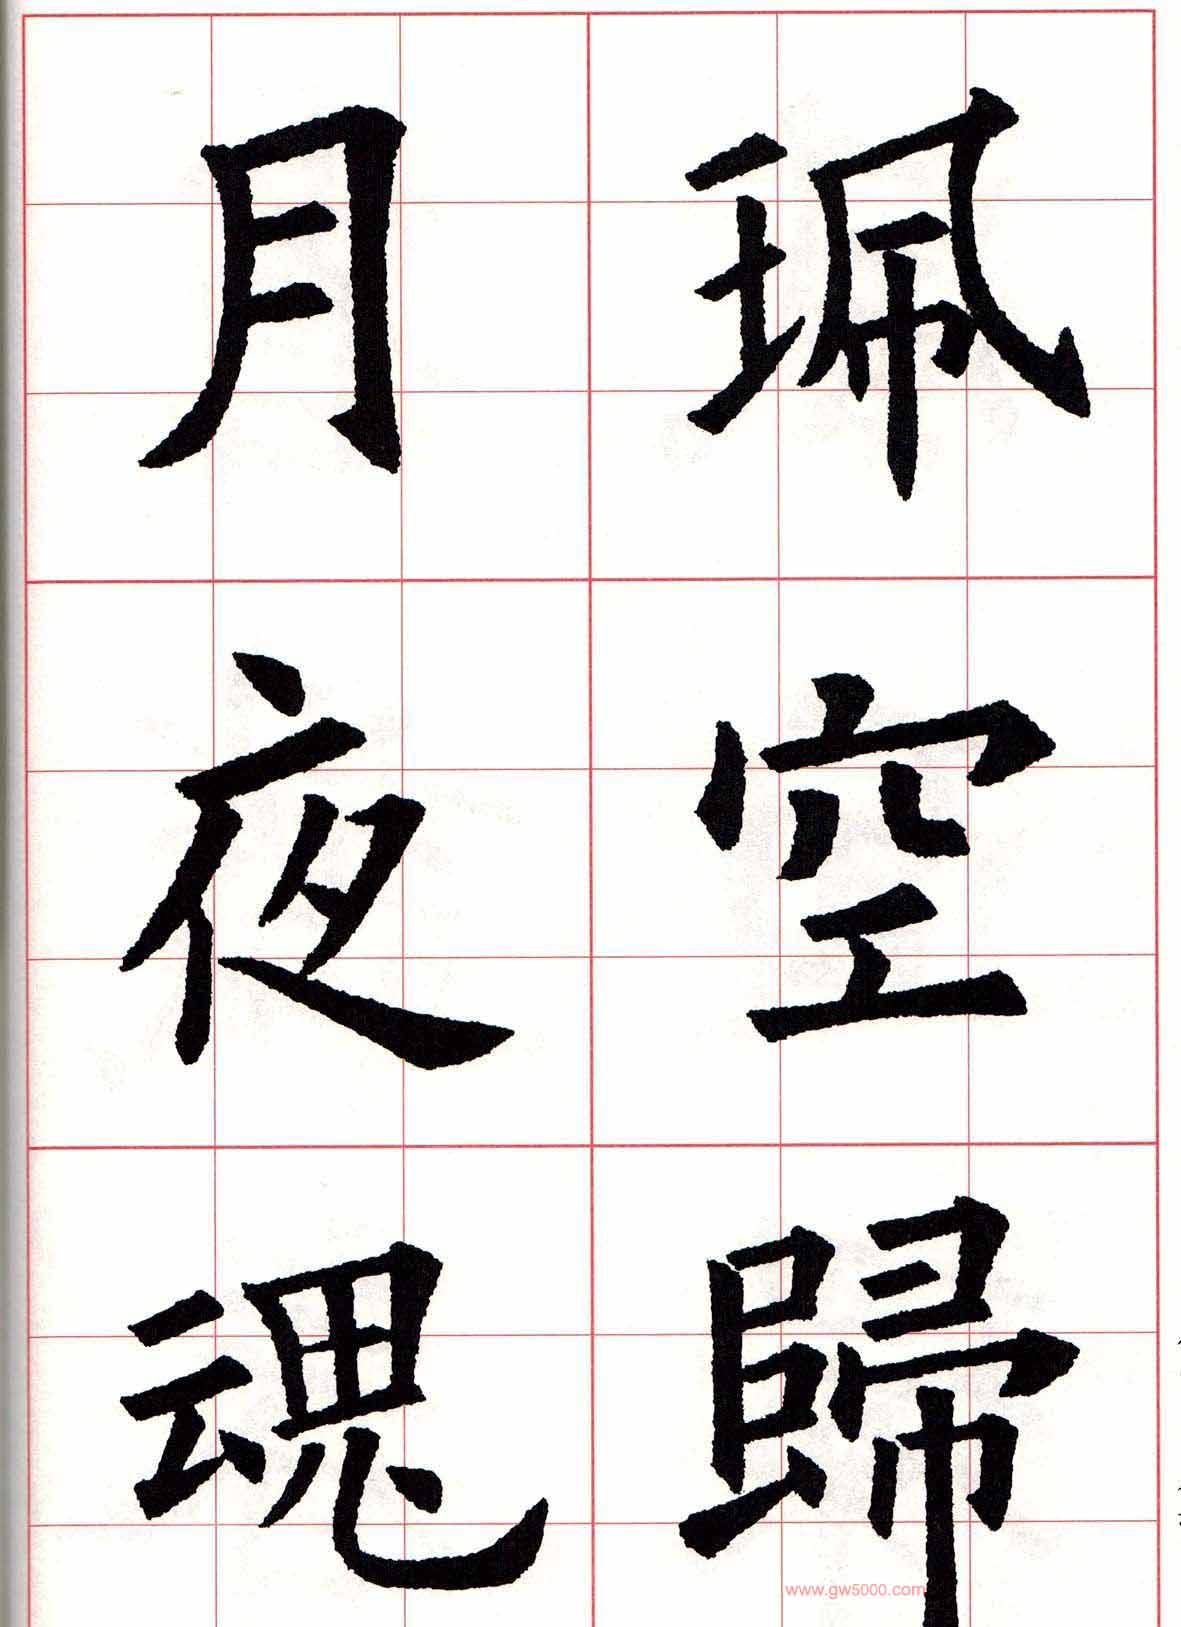 珮空歸
月夜魂
www.gw5000.com